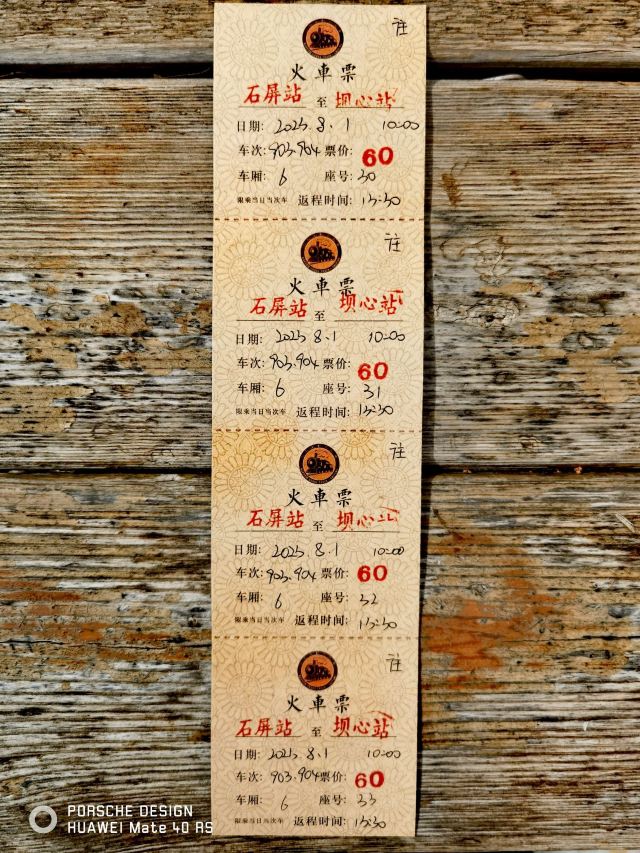 往
火車票
石屏站 至 坝心站
日期: 2025.8.1 10:00
车次: 903.904 票价: 60
车厢: 6 座号: 30
限乘当日当次车 返程时间: 13:30
往
火車票
石屏站 至 坝心站
日期: 2025 8.1 10:00
车次: 903.904 票价: 60
车厢: 6 座号: 31
限乘当日当次车 返程时间: 13:30
往
火車票
石屏站 至 坝心站
日期: 2025.8.1 10:00
车次: 903.904 票价: 60
车厢: 6 座号: 32
限乘当日当次车 返程时间: 13:30
往
火車票
石屏站 至 坝心站
日期: 2025.8.1 10:00
车次: 903.904 票价: 60
车厢: 6 座号: 33
限乘当日当次车 返程时间: 13:30
PORSCHE DESIGN
HUAWEI Mate 40 RS